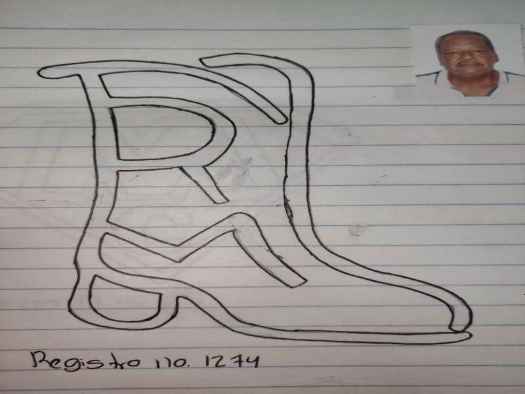 R
M
Registro no. 1274